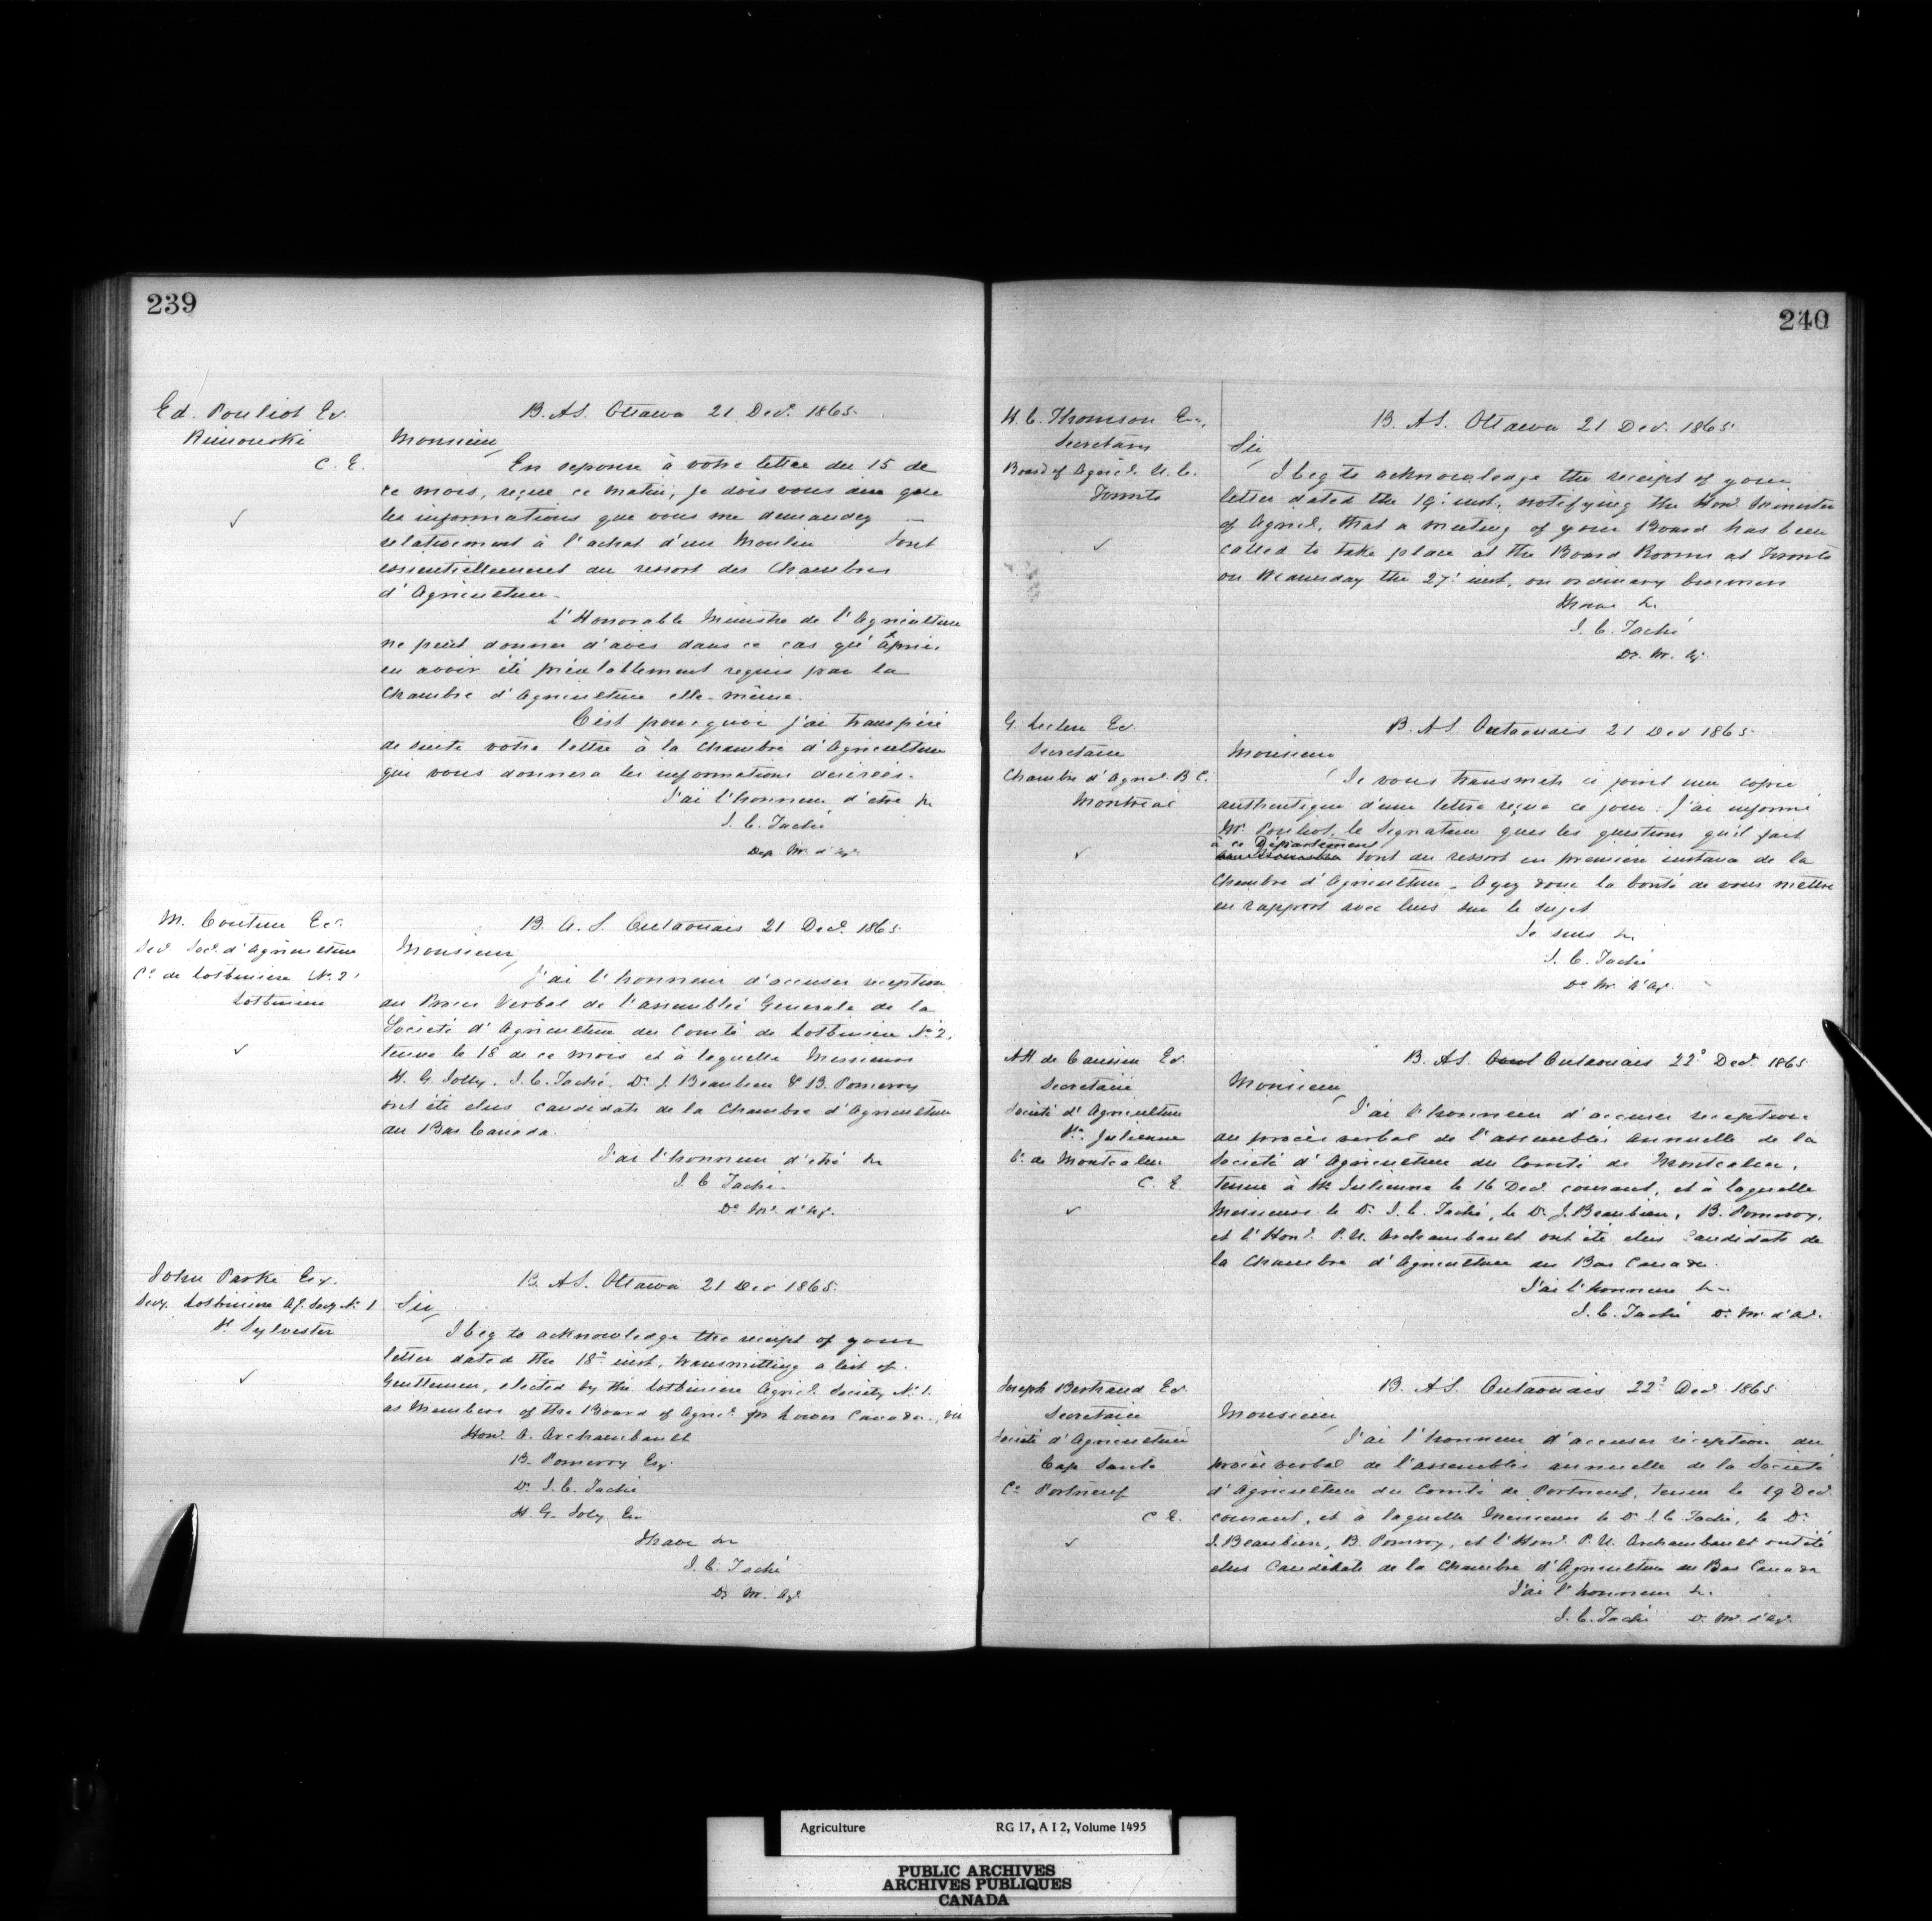 239
Ed. Pouliot Er.
Rimouski
C. E.
B. AS. Ottawa 21 Decr. 1865.
Monsieur,
En reponse à votre lettre du 15 de
ce mois, reçue ce matin, je dois vous dire que
les informations que vous me demandez
relativement à l'achat d'un Moulin sont
essentiellement du ressort des Chambres
d'Agriculture.
L'Honorable Ministre de l'Agriculture
ne peut donner d'avis dans ce cas qu'après
en avoir été préalablement requis par la
Chambre d'Agriculture elle-même.
C'est pourquoi j'ai transféré
de suite votre lettre à la Chambre d'Agriculture
qui vous donnera les informations desirées.
J'ai l'honneur d'etre &c
J. C. Taché
Dep. M. d'Ag.
M. Couture Er.
Secr. Socé. d'Agriculture
Co. de Lotbiniere No. 2
Lotbiniere
B. A. S. Outaouais 21 Decr. 1865
Monsieur,
J'ai l'honneur d'accuser reception
du Proces Verbal de l'assemblée Generale de la
Société d'Agriculture du Comté de Lotbiniere No. 2,
tenue le 18 de ce mois et à laquelle Messieurs
H. G. Jolly, J. C. Taché, Dr. J. Beaubien & B. Pomeroy
ont été élus candidats de la Chambre d'Agriculture
du Bas Canada.
J'ai l'honneur d'etre &c
J. C Taché.
De. Mr. d'Ag.
John Parke Esq.
Secy. Lotbiniere Ag. Socy No. 1
St. Sylvester
B. AS. Ottawa 21 Dec 1865.
Sir,
I beg to acknowledge the receipt of your
letter dated the 18th inst, transmitting a list of
Gentlemen, elected by the Lotbiniere Agricl. Society No. 1.
as Members of the Board of Agricl. for Lower Canada, viz
Honl. A. Archambault
B. Pomeroy Esq.
Dr. J. C. Taché
H. G. Joly Esq.
I have &c
J. C. Taché
Dy. M. Agl.
240
H. C. Thomson Esq.,
Secretary
Board of Agricl. U. C.
Toronto
B. AS. Ottawa 21 Dec. 1865.
Sir,
I beg to acknowledge the receipt of your
letter dated the 19th inst, notifying the Honl. Minister
of Agricl. that a meeting of your Board has been
called to take place at the Board Rooms at Toronto
on Wednesday the 27th inst, on ordinary business
I have &c
J. C. Taché
Dy. M. Ag.
G. Leclere Er.
Secretaire
Chambre d'Agricl. B. C.
Montreal
B. AS Outaouais 21 Dec 1865.
Monsieur
Je vous transmets ci joint une copie
authentique d'une lettre reçue ce jour. J'ai informé
Mr. Pouliot, le Signataire que les questions qu'il fait
à ce Département
sont du ressort en premiere instance de la
Chambre d'Agriculture. Ayez donc la bonté de vous mettre
en rapport avec lui sur le sujet
Je suis &c
J. C. Taché
De. M. d'Ag.
Er.
Secretaire
Société d'Agriculture
Ste. Julienne
Co. de Montcalm
C. E.
B. AS. Outaouais 22e Decr. 1865
Monsieur,
J'ai l'honneur d'accuser reception
du procès verbal de l'assemblée annuelle de la
Société d'Agriculture du Comté de Montcalm,
tenue à Ste Julienne le 16 Decr. courant, et à laquelle
Messieurs le Dr. J. C. Taché, le Dr. J. Beaubien, B. Pomeroy,
et l'Honl. P. U. Archambault ont été élus Candidats de
la Chambre d'Agriculture du Bas Canada.
J'ai l'honneur &c.
J. C. Taché De. M. d'Ag.
Joseph Bertrand Er.
Secretaire
Société d'Agriculture
Cap Santé
Co. Portneuf
C E.
B. AS. Outaouais 22e Decr. 1865
Monsieur,
J'ai l'honneur d'accuser réception du
procès verbal de l'assemblée annuelle de la Société
d'Agriculture du Comté de Portneuf, tenue le 19 Decr.
courant, et à laquelle Messieurs le Dr. J. C Taché, le Dr.
J. Beaubien, B. Pomroy, et l'Honl. P. U. Archambault ont été
élus Candidats de la Chambre d'Agriculture du Bas Canada
J'ai l'honneur &c.
J. C. Taché D. M. d'Ag.
Agriculture RG 17, A I 2, Volume 1495
PUBLIC ARCHIVES
ARCHIVES PUBLIQUES
CANADA